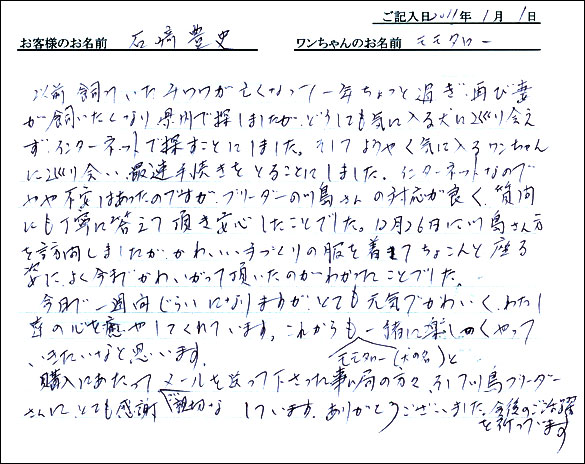 ご記入日 2011年 1月 1日
お客様のお名前 石崎 豊史 ワンちゃんのお名前 モモタロー
以前飼っていたみつつが亡くなって一年ちょっと過ぎ、再び妻
が飼いたくなり県内で探しましたが、どうしても気に入る犬に巡り会え
ず、インターネットで探すことにしました。そしてようやく気に入るワンちゃん
に巡り会い、最速手続きをとることにしました。インターネットなので
やや不安はあったのですが、ブリーダーの川島さんの対応が良く、質問
にも丁寧に答えて頂き安心したことでした。12月26日に川島さん方
を訪問しましたが、かわいい手づくりの服を着てちょこんと座る
姿に、よく今までかわいがって頂いたのがわかったことでした。
今日で一週間ぐらいになりますが、とても元気でかわいく、わたし
達の心を癒やしてくれています。これからもモモタロー(犬の名)と一緒に楽しくやって
いきたいなと思います。
購入にあたってメールを送って下さった事務局の方々、そして川島ブリーダー
さんに、とても感謝しています。ご親切な ありがとうございました。今後のご活躍
を祈っています